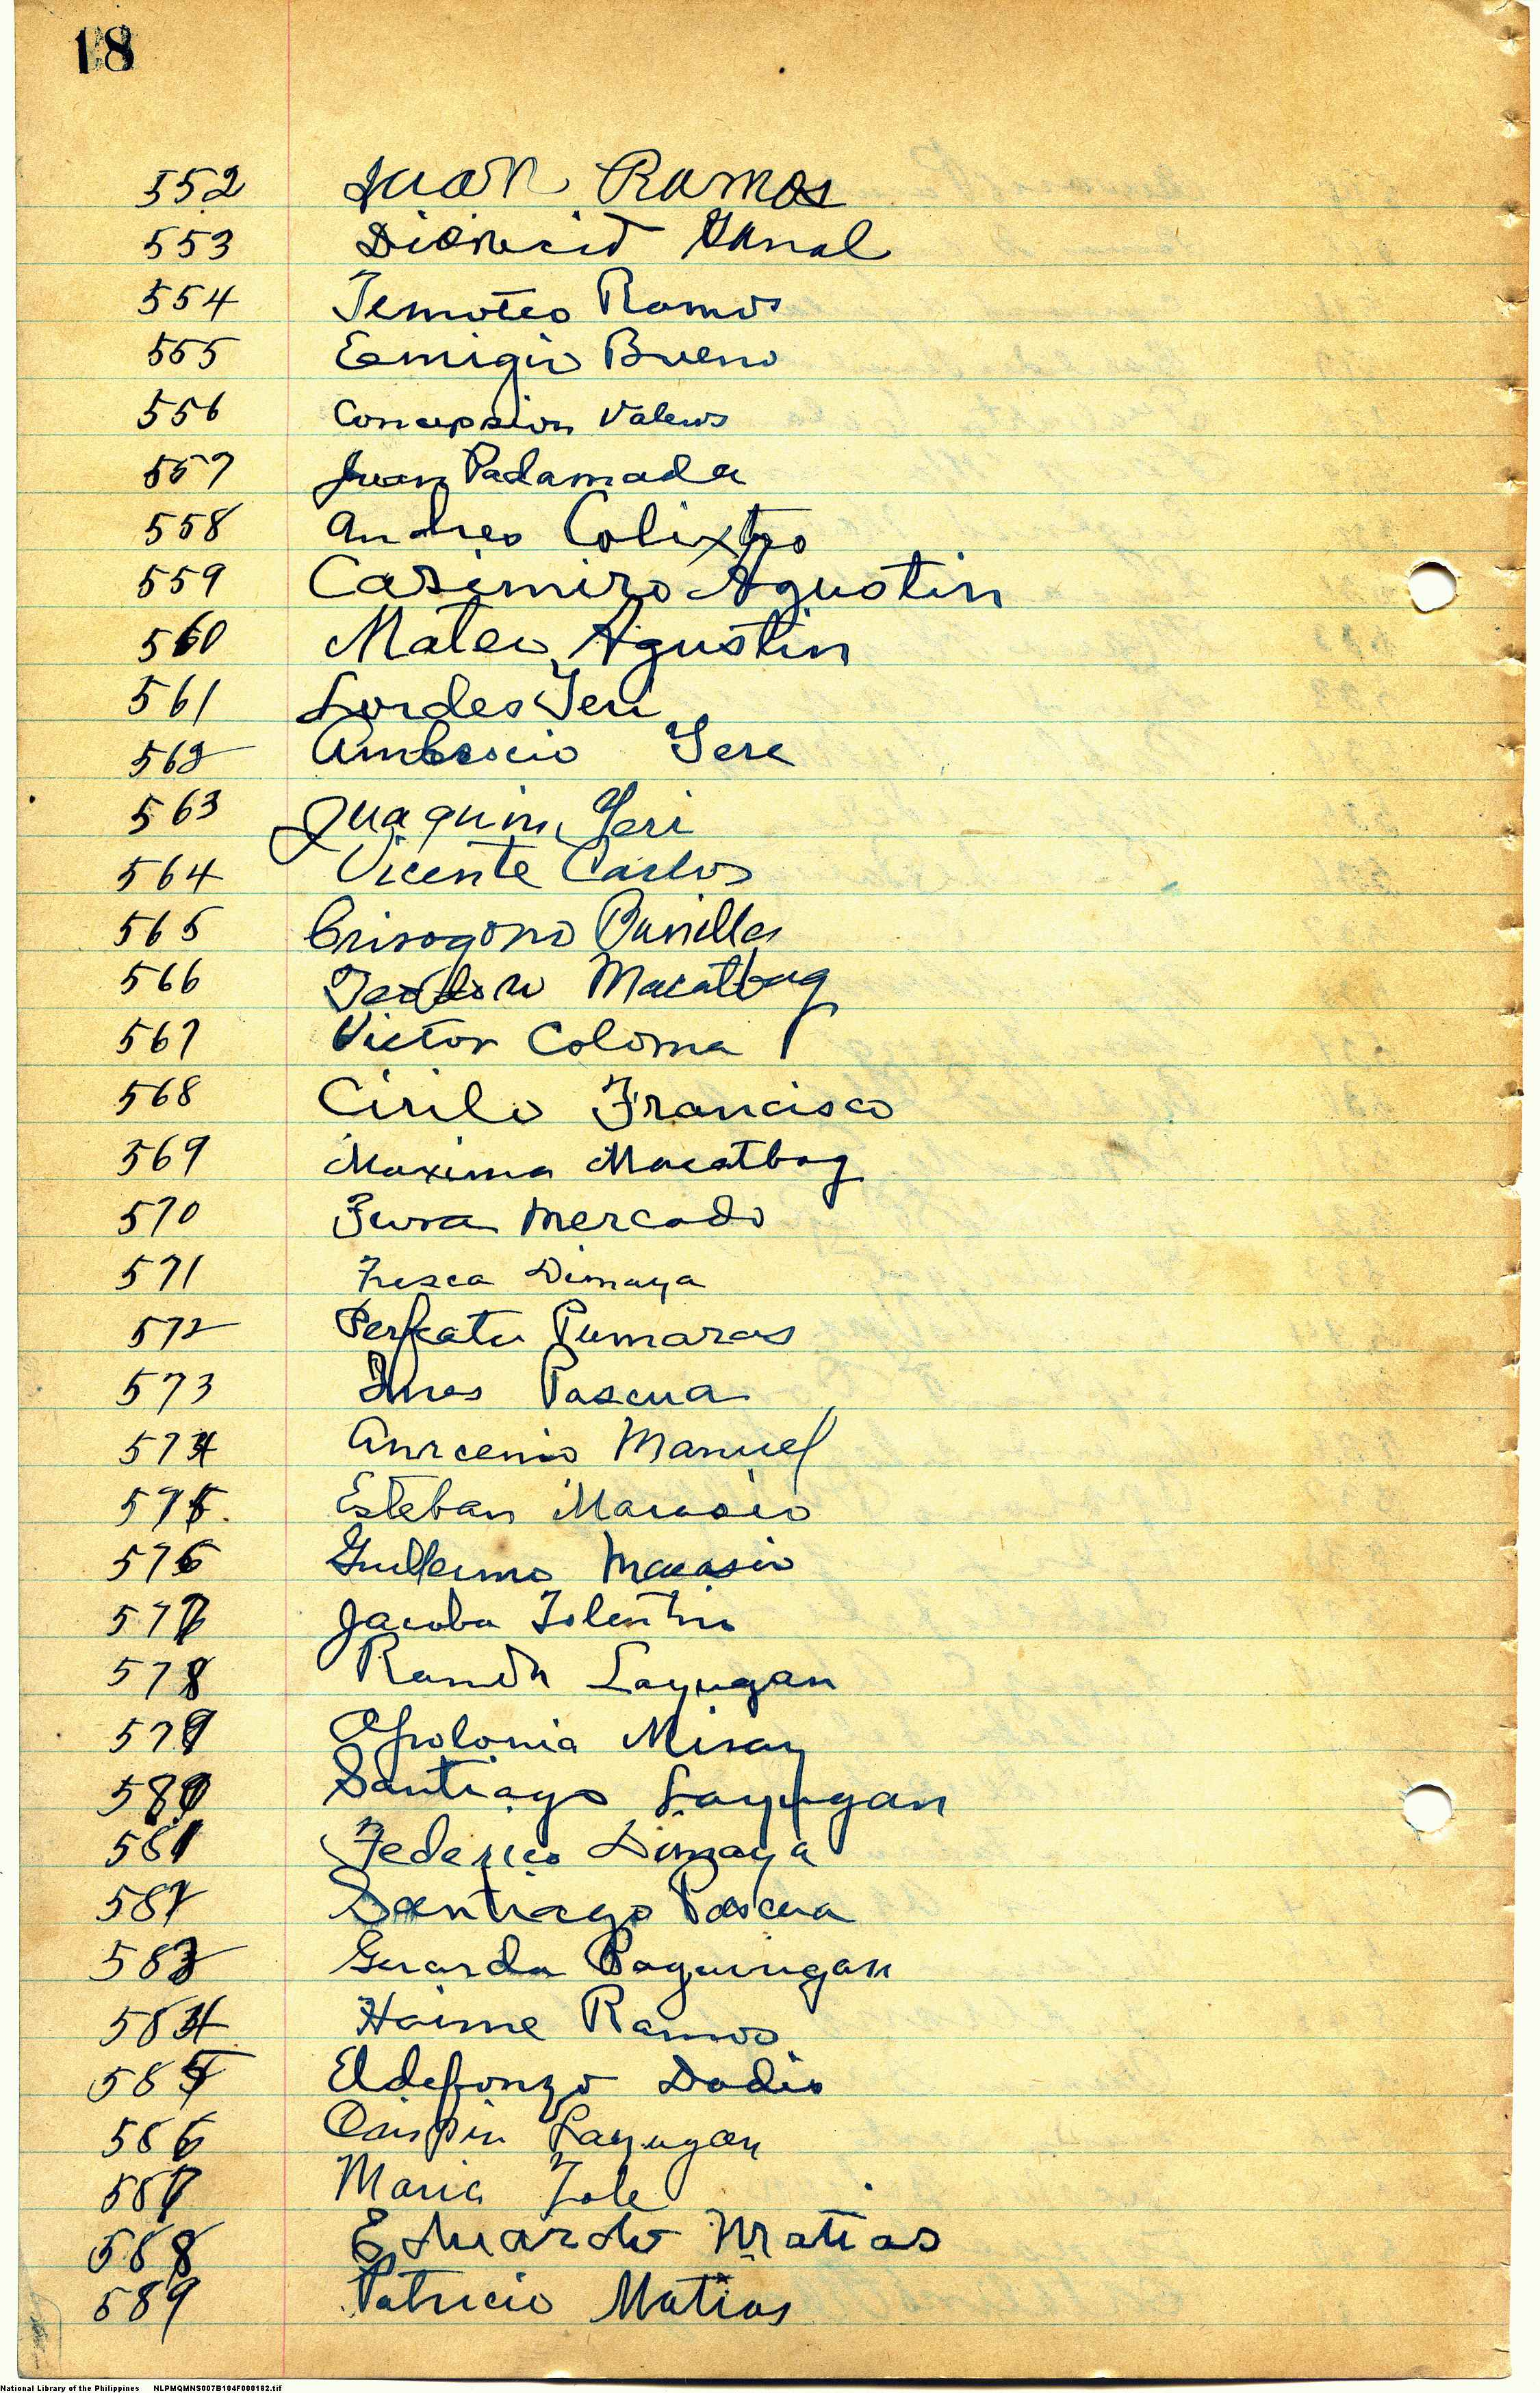 18
552 Juan Ramos
553 Dionicio Ganal
554 Temoteo Ramos
555 Emigio Bueno
556 Concepsion Valens
557 Juan Padamada
558 Andres Colixtro
559 Casimiro Agustin
560 Mateo Agustin
561 Lordes Yeri
562 Ambrocio Yere
563 Juaquin Yeri
564 Vicente Carlos
565 Crisogono Bunilla
566 Macatbag
567 Victor Coloma
568 Cirilo Francisco
569 Maxima Macatbag
570 Mercado
571 Fresca Dimaya
572 Perfecta Pumaras
573 Ines Pascua
574 Anrcenio Manuel
575 Esteban Macasio
576 Guillermo Macasio
577 Jacoba Tolentin
578 Ramon Layugan
579 Apolonia Misay
580 Santiago Layugan
581 Federico Dimaya
582 Santiago Pascua
583 Gerarda Paguingan
584 Haime Ramos
585 Eldefonzo Dadis
586 Crispin Layugan
587 Maria Tole
588 Eduardo Matias
589 Patricio Matias
National Library of the Philippines NLPMQMNS007B104F000182.tif